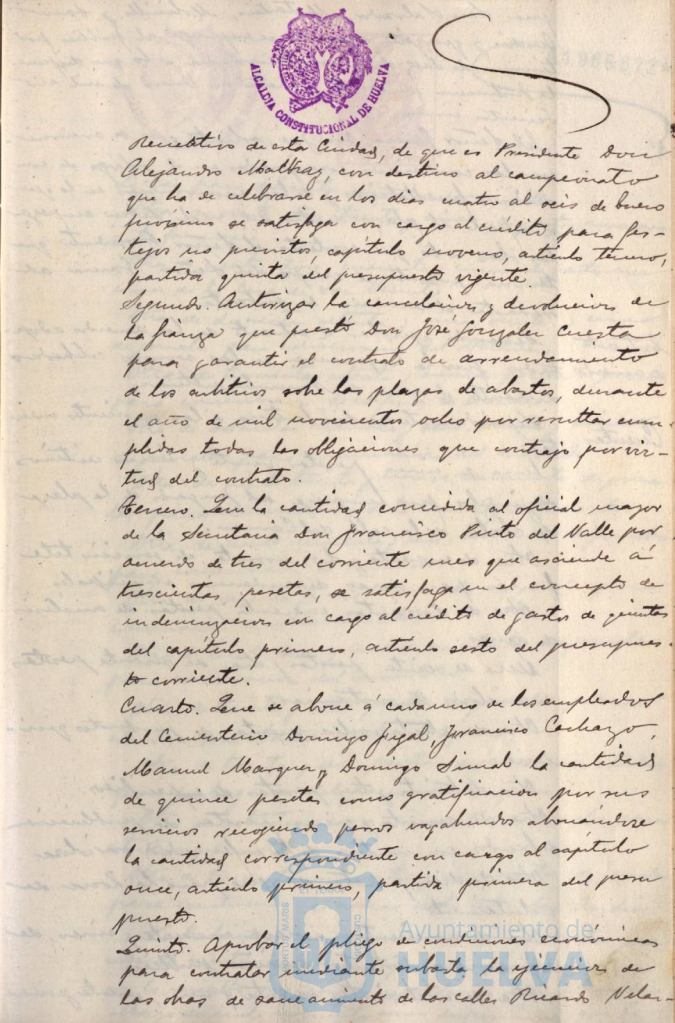 ALCALDIA CONSTITUCIONAL DE HUELVA
Recreativo de esta Ciudad, de que es Presidente Don
Alejandro con destino al campeonato
que ha de celebrarse en los dias cuatro al seis de Enero
próximo se satisfaga con cargo al crédito para fes-
tejos no previstos, capítulo noveno, artículo tercero,
partida quinta del presupuesto vigente.
Segundo. Autorizar la cancelacion y devolucion de
la fianza que prestó Don José Gonzalez Cuesta
para garantir el contrato de arrendamiento
de los arbitrios sobre las plazas de abastos, durante
el año de mil novecientos ocho por resultar cum-
plidas todas las obligaciones que contrajo por vir-
tud del contrato.
Tercero. Que la cantidad concedida al oficial mayor
de la Secretaria Don Francisco Pinto del Valle por
acuerdo de tres del corriente mes que asciende á
trescientas pesetas, se satisfaga en el concepto de
indemnizacion con cargo al crédito de gastos de quintas
del capítulo primero, artículo sesto del presupues-
to corriente.
Cuarto. Que se abone á cada uno de los empleados
del Cementerio Domingo Francisco
Manuel Marquez y Domingo la cantidad
de quince pesetas como gratificacion por sus
servicios recogiendo perros vagabundos abonándose
la cantidad correspondiente con cargo al capítulo
once, artículo primero, partida primera del presu
puesto.
Quinto. Aprobar el pliego de condiciones económicas
para contratar mediante subasta la ejecucion de
las obras de saneamiento de las calles Ricardo Velaz-
Ayuntamiento de
HUELVA